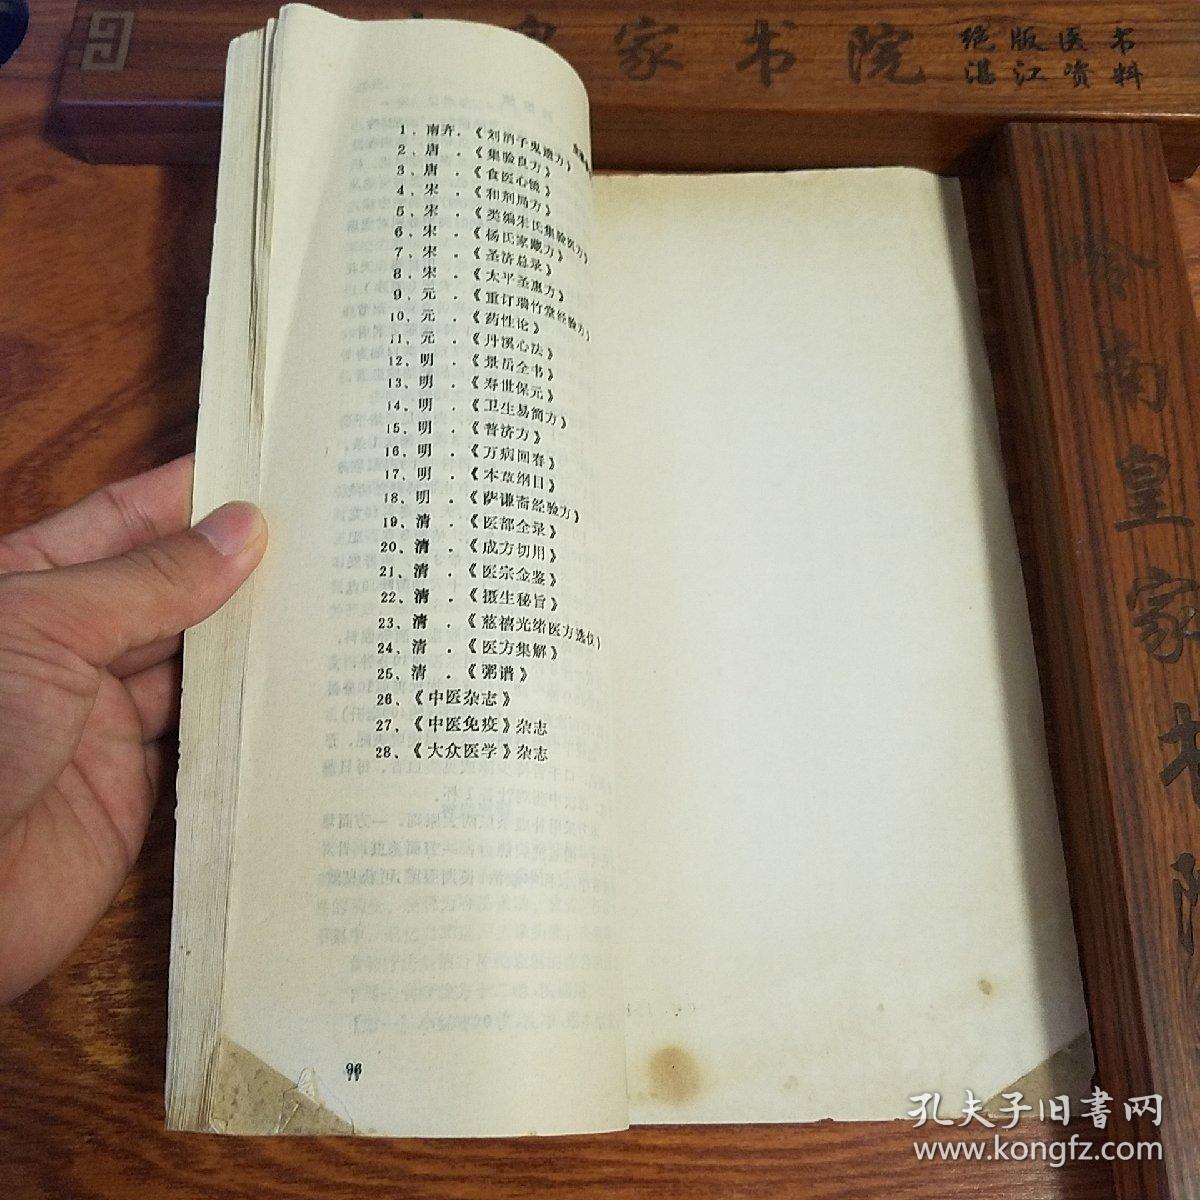 皇家书院
绝版医书
湛江资料
1、南齐．《刘涓子鬼遗方》
2、唐．《集验良方》
3、唐．《食医心镜》
4、宋．《和剂局方》
5、宋．《类编朱氏集验医方》
6、宋．《杨氏家藏方》
7、宋．《圣济总录》
8、宋．《太平圣惠方》
9、元．《重订瑞竹堂经验方》
10、元．《药性论》
11、元．《丹溪心法》
12、明．《景岳全书》
13、明．《寿世保元》
14、明．《卫生易简方》
15、明．《普济方》
16、明．《万病回春》
17、明．《本草纲目》
18、明．《萨谦斋经验方》
19、清．《医部全录》
20、清．《成方切用》
21、清．《医宗金鉴》
22、清．《摄生秘旨》
23、清．《慈禧光绪医方选仪》
24、清．《医方集解》
25、清．《粥谱》
26、《中医杂志》
27、《中医免疫》杂志
28、《大众医学》杂志
96
岭南皇家书院
孔夫子旧书网
www.kongfz.com